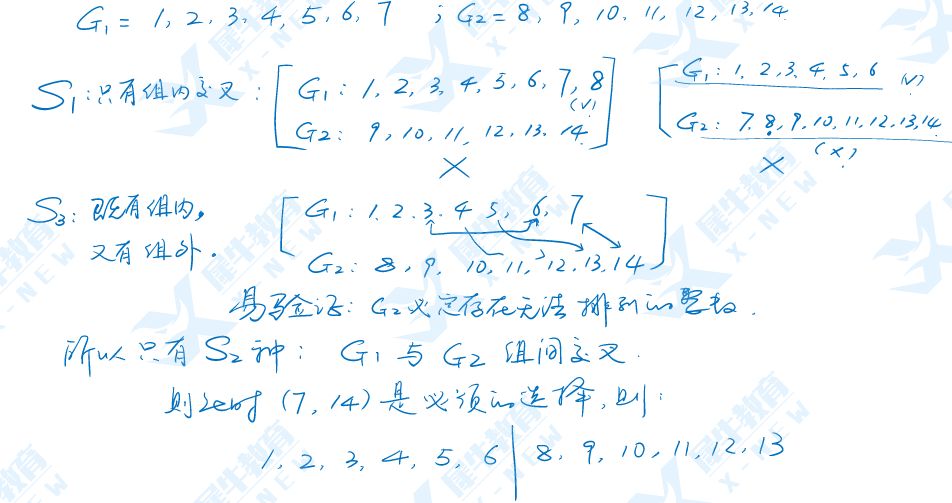 G₁ = 1, 2, 3, 4, 5, 6, 7 ; G₂ = 8, 9, 10, 11, 12, 13, 14
S₁: 只有组内交叉: G₁: 1, 2, 3, 4, 5, 6, 7, 8 (√) G₁: 1, 2, 3, 4, 5, 6 (√)
G₂: 9, 10, 11, 12, 13, 14 G₂: 7, 8, 9, 10, 11, 12, 13, 14
× (×) ×
S₃: 既有组内, G₁: 1, 2, 3, 4, 5, 6, 7
又有组外. G₂: 8, 9, 10, 11, 12, 13, 14
易验证: G₂必定存在无法排列的整数.
所以只有S₂种: G₁与G₂组间交叉.
则此时 (7, 14) 是必须的选择, 则:
1, 2, 3, 4, 5, 6 | 8, 9, 10, 11, 12, 13
犀牛教育
X-NEW